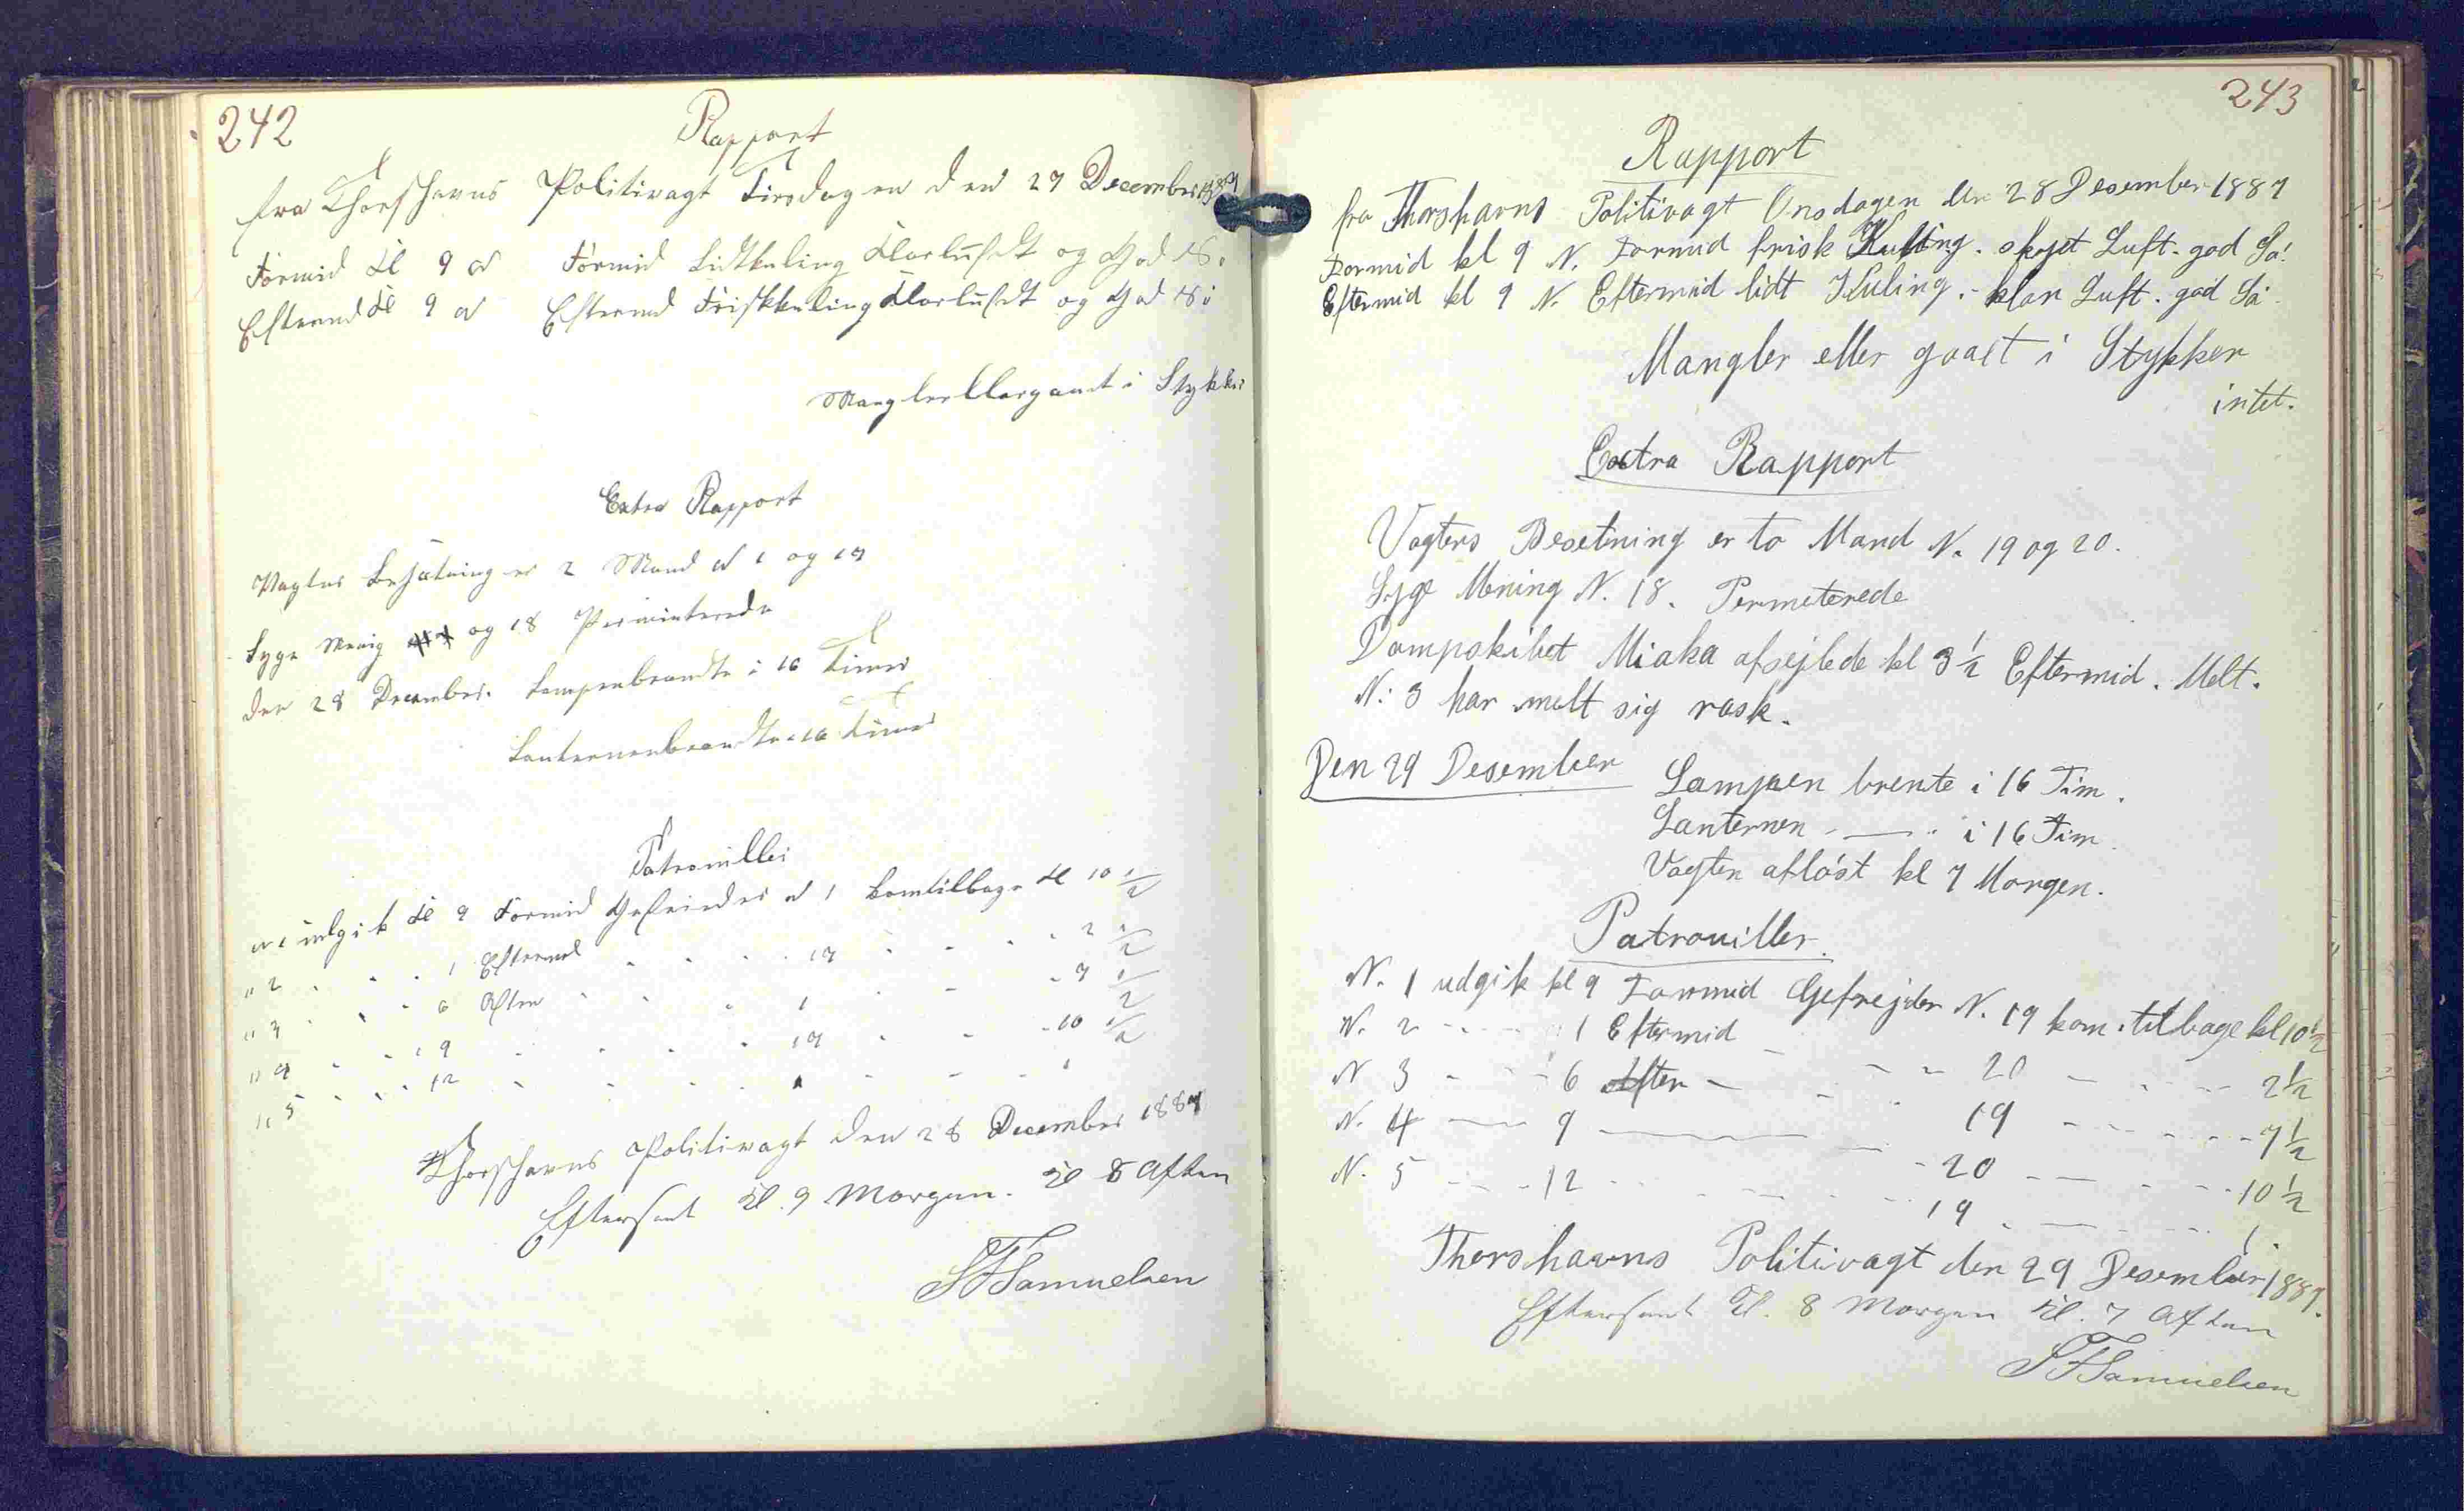 242
Rapport
fra Thorshavns Politivagt Tirsdagen den 27 December 1887
Formid Kl 9 N Formid Lidtkuling Klarluft og God Sö
Eftermd Kl 9 N Eftermd Friskkuling Klarluft og God Sö
Mangler Ellergaaet i Stykker
Extra Rapport
Vagtens Besætning er 2 Mand N 1 og 19
Syge Menig og 18 Perminterede
den 28 December. Lampenbrændte i 16 Timer
Lanternenbrændte i 16 Timer
Patrouiller
N 1 udgik Kl 9 Formid Gefreider N 1 komtilbage Kl 10 1/2
" 2 - - - 1 Eftermd - - - - 19 - - - - 2 1/2
" 3 - - - 6 Aften - - - 1 - - - 7 1/2
" 4 - - - 9 - - - - 19 - - - 10 1/2
" 5 - - - 12 - - - - 1 - - - 1
Thorshavns Politivagt den 28 December 1887
Efterseet Kl. 9 Morgen. Kl 8 Aften
SFSamuelsen
243
Rapport
fra Thorshavns Politivagt Onsdagen den 28 Desember 1887
Formid kl 9 N. Formid frisk Kuling. skyet Luft. god Sö.
Eftermid kl 9 N. Eftermid lidt Kuling. - klar Luft. god Sö.
Mangler eller gaaet i Stykker
intet.
Extra Rapport
Vagtens Besetning er to Mand N. 19 og 20.
Syge Mening N. 18. Permeterede
Dampskibet Miaka afsejlede kl 3 1/2 Eftermid. Melt.
N. 3 har melt sig rask.
Den 29 Desember Lampen brente i 16 Tim.
Lanternen - — - i 16 Tim.
Vagten afløst kl 7 Morgen.
Patrouiller.
N. 1 udgik kl 9 Formid Gefrejder N. 19 kom. tilbage kl 10 1/2
N. 2 - - - - 1 Eftermid - - - 20 - - - - 2 1/2
N 3 - - - 6 Aften - - - 19 - - - - 7 1/2
N. 4 — 9 — - 20 - — - - - 10 1/2
N. 5 - - - 12 - - - - 19 - — - - - 1
Thorshavns Politivagt den 29 Desember 1887.
Efterseet Kl. 8 Morgen Kl. 7 Aften
SFSamuelsen